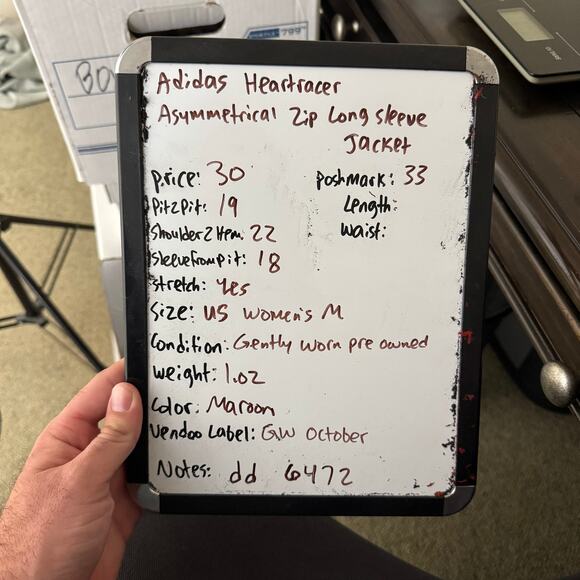 Adidas Heartracer
Asymmetrical Zip Long sleeve
Jacket
price: 30
poshmark: 33
Pit2Pit: 19
Length:
Shoulder2Hem: 22
Waist:
SleeveFromPit: 18
Stretch: yes
Size: US Women's M
Condition: Gently worn pre owned
Weight: 1.02
Color: Maroon
Vendoo Label: GW October
Notes: dd 6472
BO